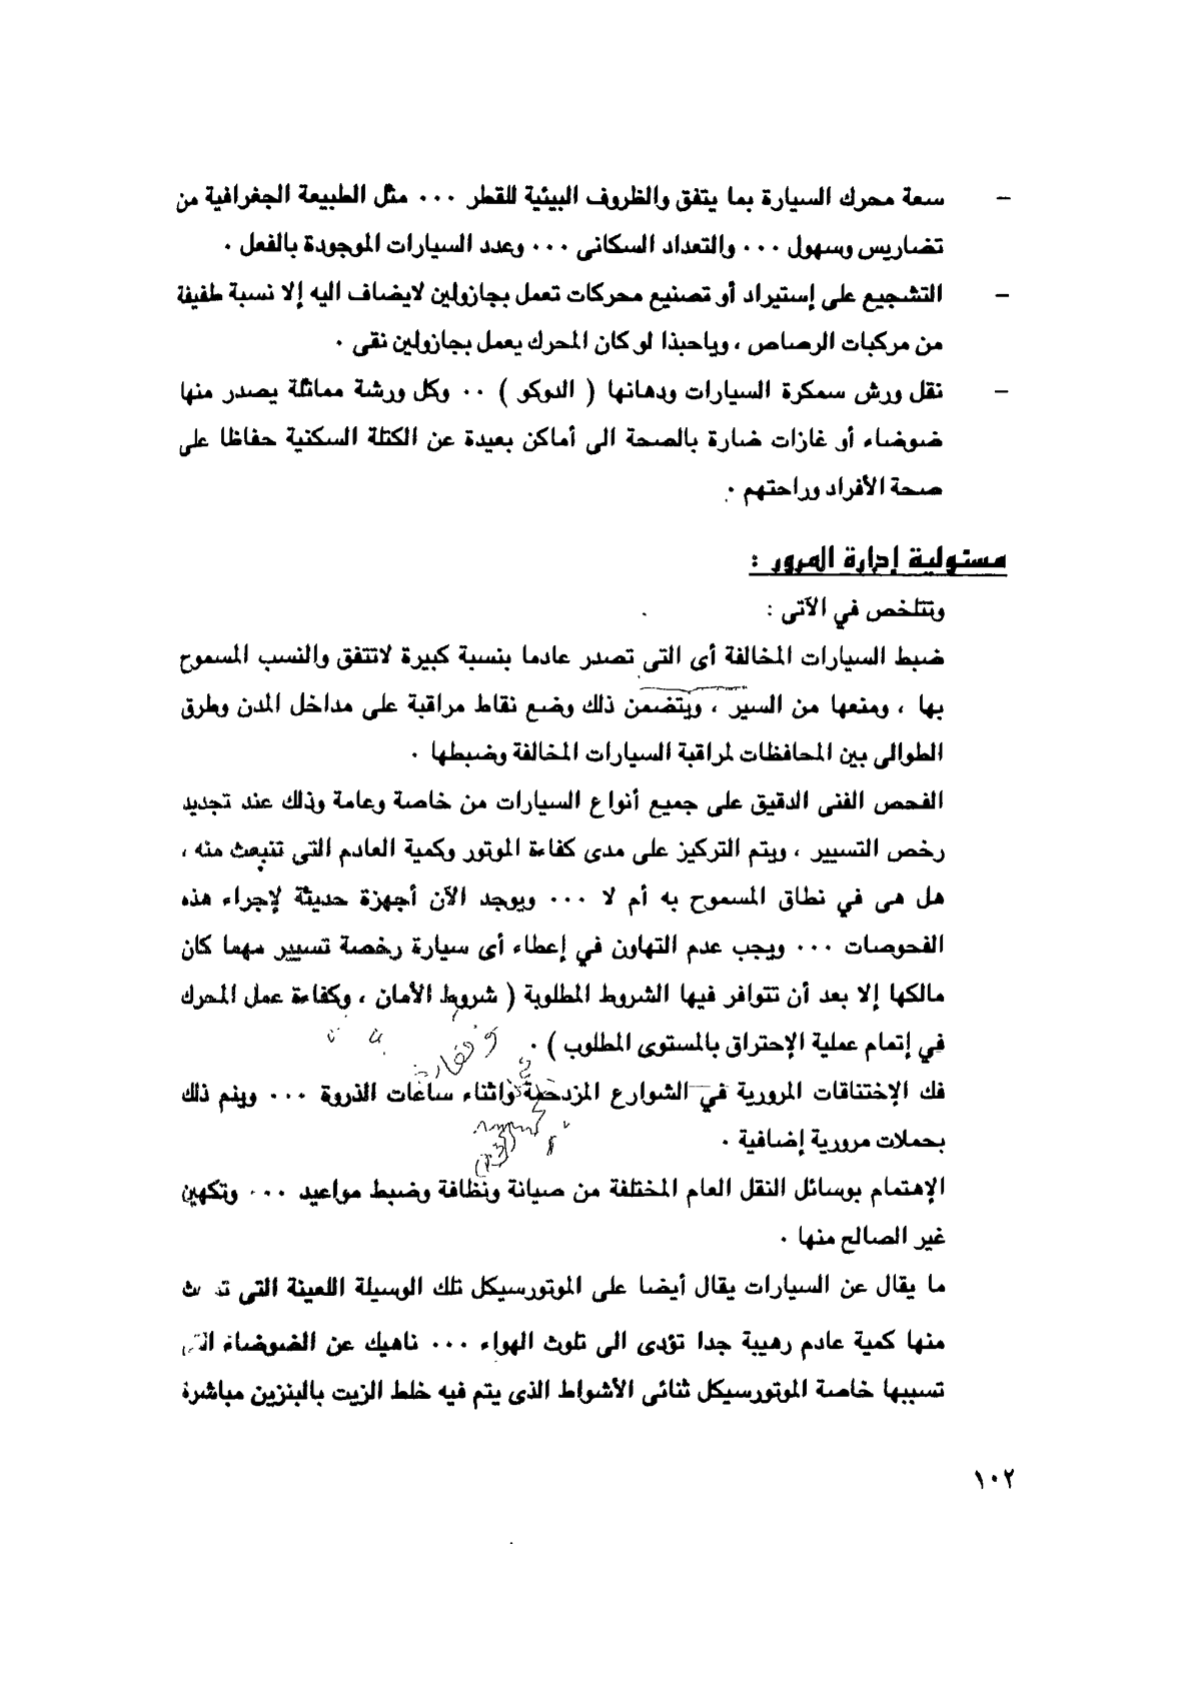 – سعة محرك السيارة بما يتفق والظروف البيئية للقطر ٠٠٠ مثل الطبيعة الجغرافية من
تضاريس وسهول ٠٠٠ والتعداد السكانى ٠٠٠ وعدد السيارات الموجودة بالفعل ٠
– التشجيع على إستيراد أو تصنيع محركات تعمل بجازولين لايضاف اليه إلا نسبة طفيفة
من مركبات الرصاص ، وياحبذا لو كان المحرك يعمل بجازولين نقى ٠
– نقل ورش سمكرة السيارات ودهانها ( الدوكو ) ٠٠ وكل ورشة مماثلة يصدر منها
ضوضاء أو غازات ضارة بالصحة الى أماكن بعيدة عن الكتلة السكنية حفاظا على
صحة الأفراد وراحتهم ٠
مسئولية إدارة المرور :
وتتلخص في الآتى :
ضبط السيارات المخالفة أى التى تصدر عادما بنسبة كبيرة لاتتفق والنسب المسموح
بها ، ومنعها من السير ، ويتضمن ذلك وضع نقاط مراقبة على مداخل المدن وطرق
الطوالى بين المحافظات لمراقبة السيارات المخالفة وضبطها ٠
الفحص الفنى الدقيق على جميع أنواع السيارات من خاصة وعامة وذلك عند تجديد
رخص التسيير ، ويتم التركيز على مدى كفاءة الموتور وكمية العادم التى تنبعث منه ،
هل هى في نطاق المسموح به أم لا ٠٠٠ ويوجد الآن أجهزة حديثة لإجراء هذه
الفحوصات ٠٠٠ ويجب عدم التهاون في إعطاء أى سيارة رخصة تسيير مهما كان
مالكها إلا بعد أن تتوافر فيها الشروط المطلوبة ( شروط الأمان ، وكفاءة عمل المحرك
في إتمام عملية الإحتراق بالمستوى المطلوب ) ٠
فك الإختناقات المرورية في الشوارع المزدحمة واثناء ساعات الذروة ٠٠٠ ويتم ذلك
بحملات مرورية إضافية ٠
الإهتمام بوسائل النقل العام المختلفة من صيانة ونظافة وضبط مواعيد ٠٠٠ وتكهين
غير الصالح منها ٠
ما يقال عن السيارات يقال أيضا على الموتورسيكل تلك الوسيلة اللعينة التى
منها كمية عادم رهيبة جدا تؤدى الى تلوث الهواء ٠٠٠ ناهيك عن الضوضاء التى
تسببها خاصة الموتورسيكل ثنائى الأشواط الذى يتم فيه خلط الزيت بالبنزين مباشرة
١٠٢